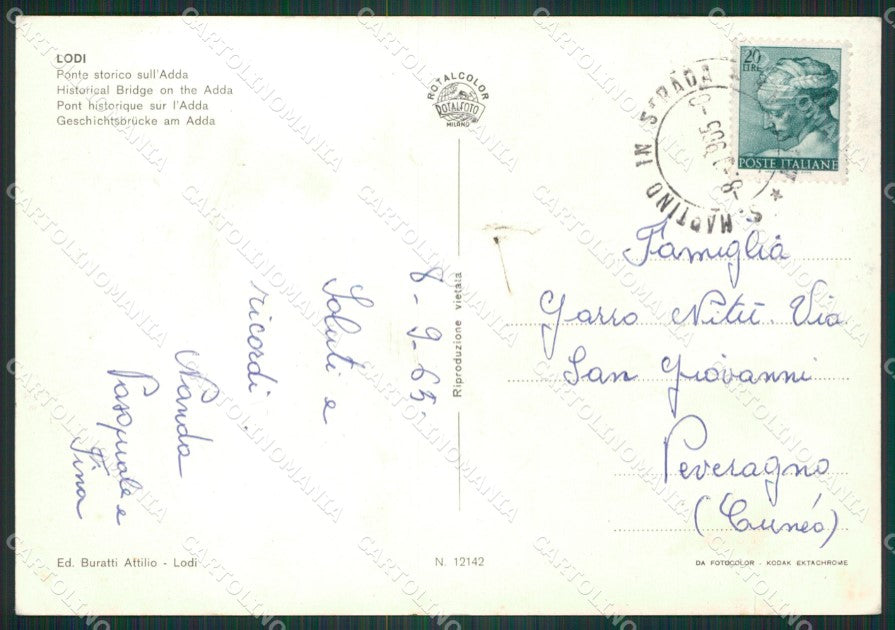 LODI
Ponte storico sull'Adda
Historical Bridge on the Adda
Pont historique sur l'Adda
Geschichtsbrücke am Adda
ROTALCOLOR
ROTALFOTO
MILANO
20
LIRE
POSTE ITALIANE
S. MARTINO IN STRADA
8-9-65.
Saluti e
ricordi.
Nanda
Pasquale e
Tina
Riproduzione vietata
Famiglia
Garro Nitti. Via
San Giovanni
Peveragno
(Cuneo)
Ed. Buratti Attilio - Lodi
N. 12142
DA FOTOCOLOR - KODAK EKTACHROME
CARTOLINOMANIA